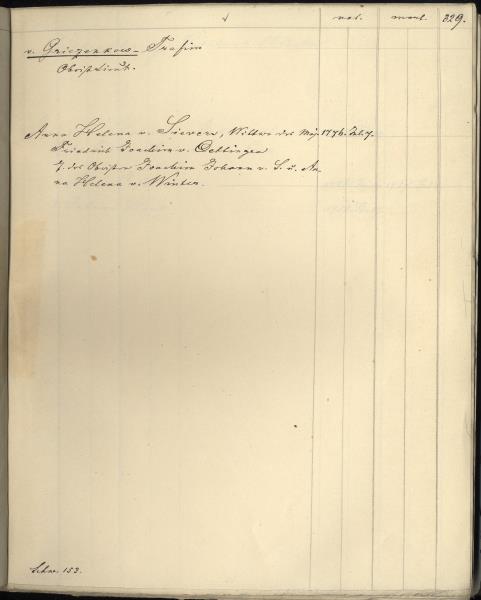 nat. mort. 329.
v. Griezenkow - Trofim
Obristlieut.
Anna Helena v. Sievers, Wittwe des Maj. 1776. Feb. 7.
Friedrich Joachim v. Oettingen
T. des Obristen Joachim Johann v. S. u. An-
na Helena v. Winter.
153.